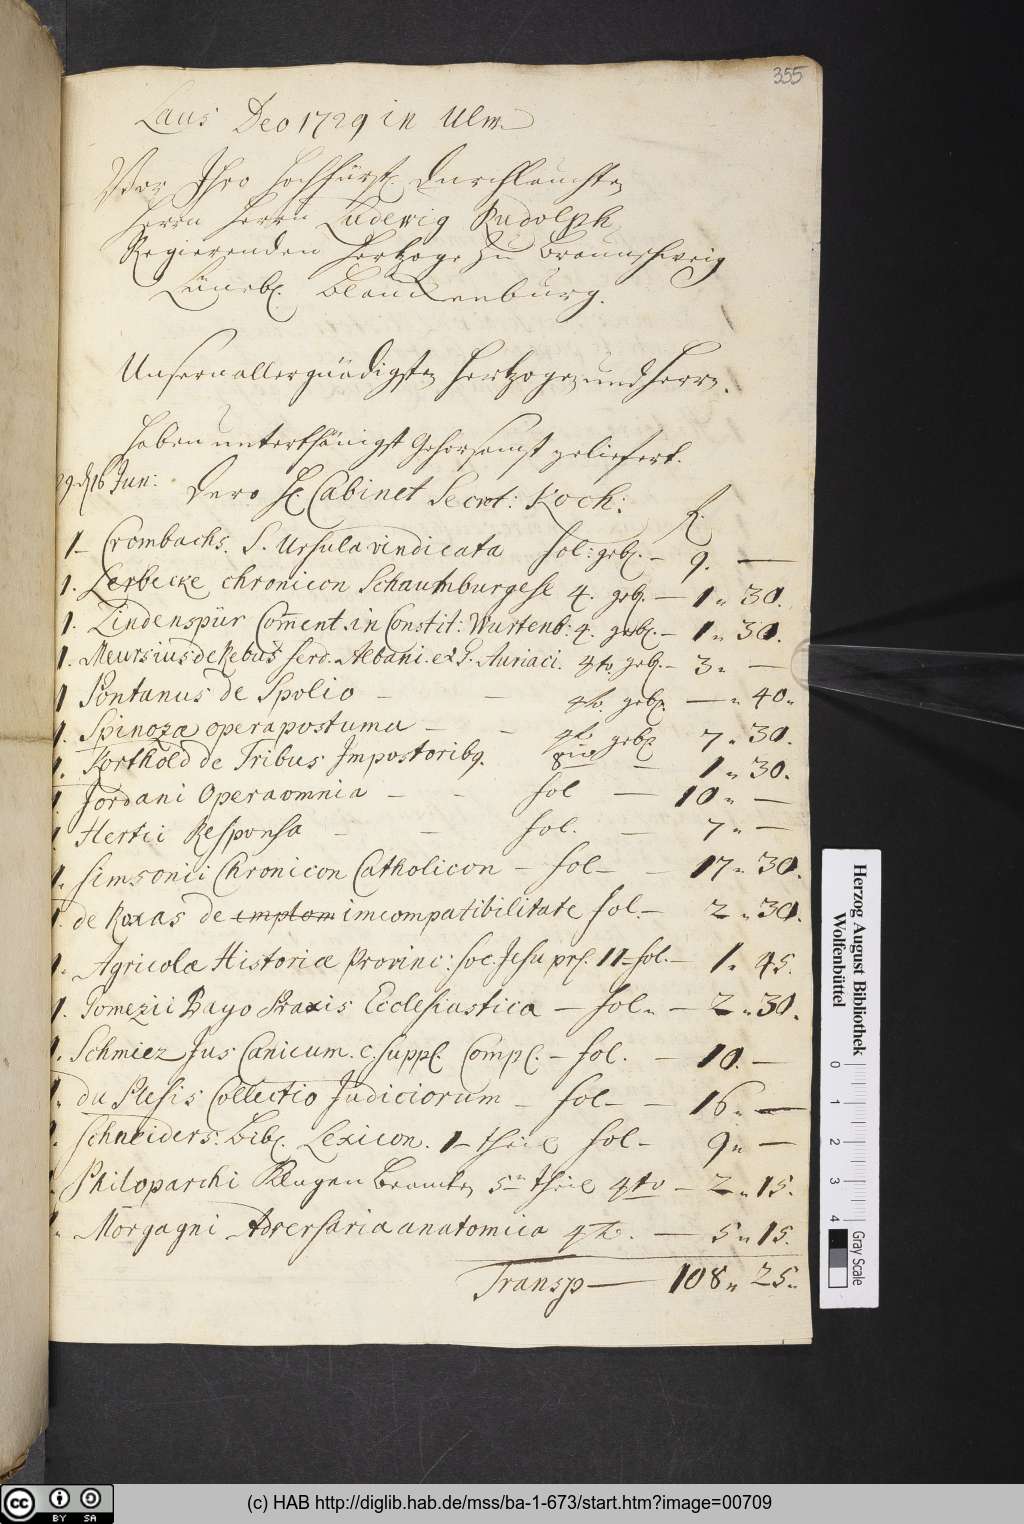 355
Laus Deo 1729 in Ulm
Vor Ihro Hochfürstl. Durchlaucht
Herrn Herrn Ludewig Rudolph
Regierenden Hertzoge zu Braunschweig
Lüneb. Blanckenburg.
Unsern allergnädigsten Hertzogen und Herrn.
Haben unterthänigst Gehorsamst geliefert.
29. d. 16 Jun: Dero H. Cabinet Secret: Koch:
f.
1– Crombachs. S. Ursula vindicata fol: geb. – 9. —
1. Lerbecke chronicon Schaumburgese 4. geb. — 1 " 30.
1. Lindenspür Coment. in Constit: Wurtenb: 4. geb. – 1 " 30.
1. Meursius de Rebus ferd. Albani. et G. Auriaci. 4to. geb. – 3 " —
1 Pontanus de Spolio – – 4to. geb. — " 40 "
1. Spinoza opera postuma – – 4to geb. 7 " 30.
1. Korthold de Tribus Impostoribq. 8vo — 1 " 30.
1 Jordani Opera omnia – – fol — 10 " —
1 Hertii Responsa – – fol. — 7 " —
1. Simsonii Chronicon Catholicon – fol – – 17 " 30.
1. de Roxas de emptom imcompatibilitate fol. – 2 " 30.
1. Agricolæ Historiæ Provinc: Soc. Jesu prs. 11– fol. – 1 " 45.
1. Gomezii Bayo Praxis Ecclesiastica – fol " – 2 " 30.
1. Schmiez Jus Canicum. c. suppl. Compl. – fol. – 10. –
1. du Plesis Collectio Judiciorum – fol – – 16 " —
1. Schneiders. Bibl. Lexicon. 1– theil fol – 9 " —
1. Philoparchi Klugen Beamten 5n theil 4to – 2 " 15.
1. Morgagni Adversaria anatomica 4to. — 5 " 15.
Transp — 108 " 25 "
Herzog August Bibliothek
Wolfenbüttel
0 1 2 3 4
Gray Scale
cc BY SA
(c) HAB http://diglib.hab.de/mss/ba-1-673/start.htm?image=00709